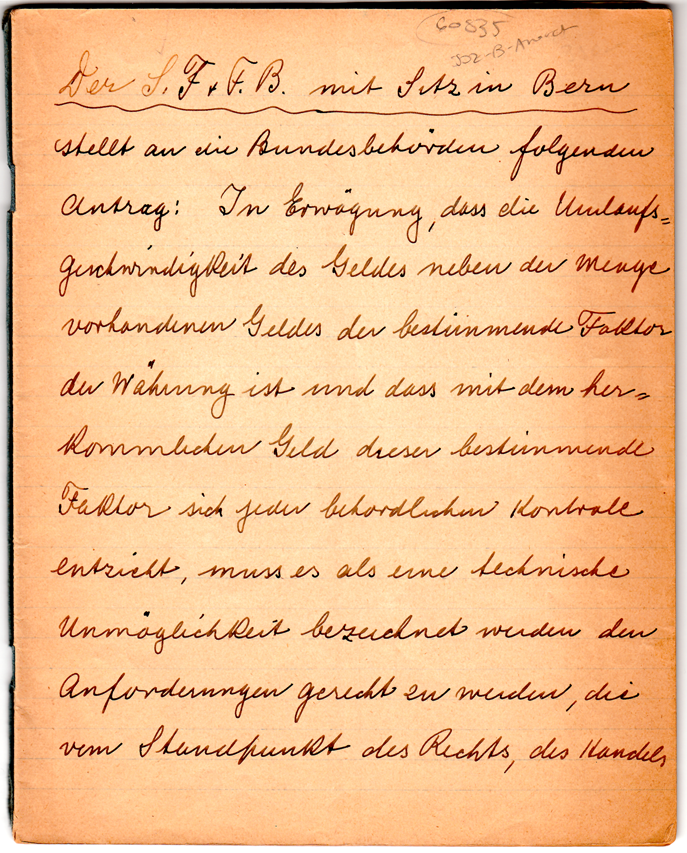 60835
Der S. F. & F. B. mit Sitz in Bern
stellt an die Bundesbehörden folgenden
Antrag: In Erwägung, dass die Umlaufs=
geschwindigkeit des Geldes neben der Menge
vorhandenen Geldes der bestimmende Faktor
der Währung ist und dass mit dem her=
kommlichen Geld dieser bestimmende
Faktor sich jeder behördlichen Kontrolle
entzieht, muss es als eine technische
Unmöglichkeit bezeichnet werden den
Anforderungen gerecht zu werden, die
vom Standpunkt des Rechts, des Handels